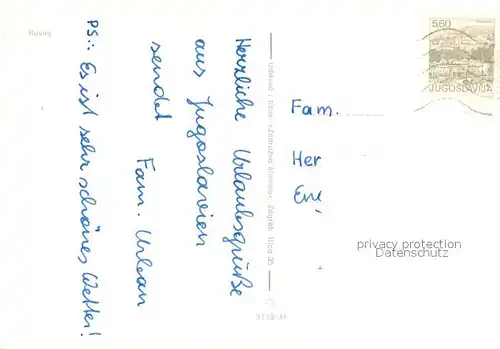 Rovinj
Herzliche Urlaubsgrüße
aus Jugoslavien
sendet
Fam. Urban
PS.: Es ist sehr schönes Wetter!
Izdavač i tisak: »Zadružna štampa«, Zagreb, Ilica 35
3118-M
5.60
JUGOSLAVIJA
Fam.
Her
privacy protection
Datenschutz